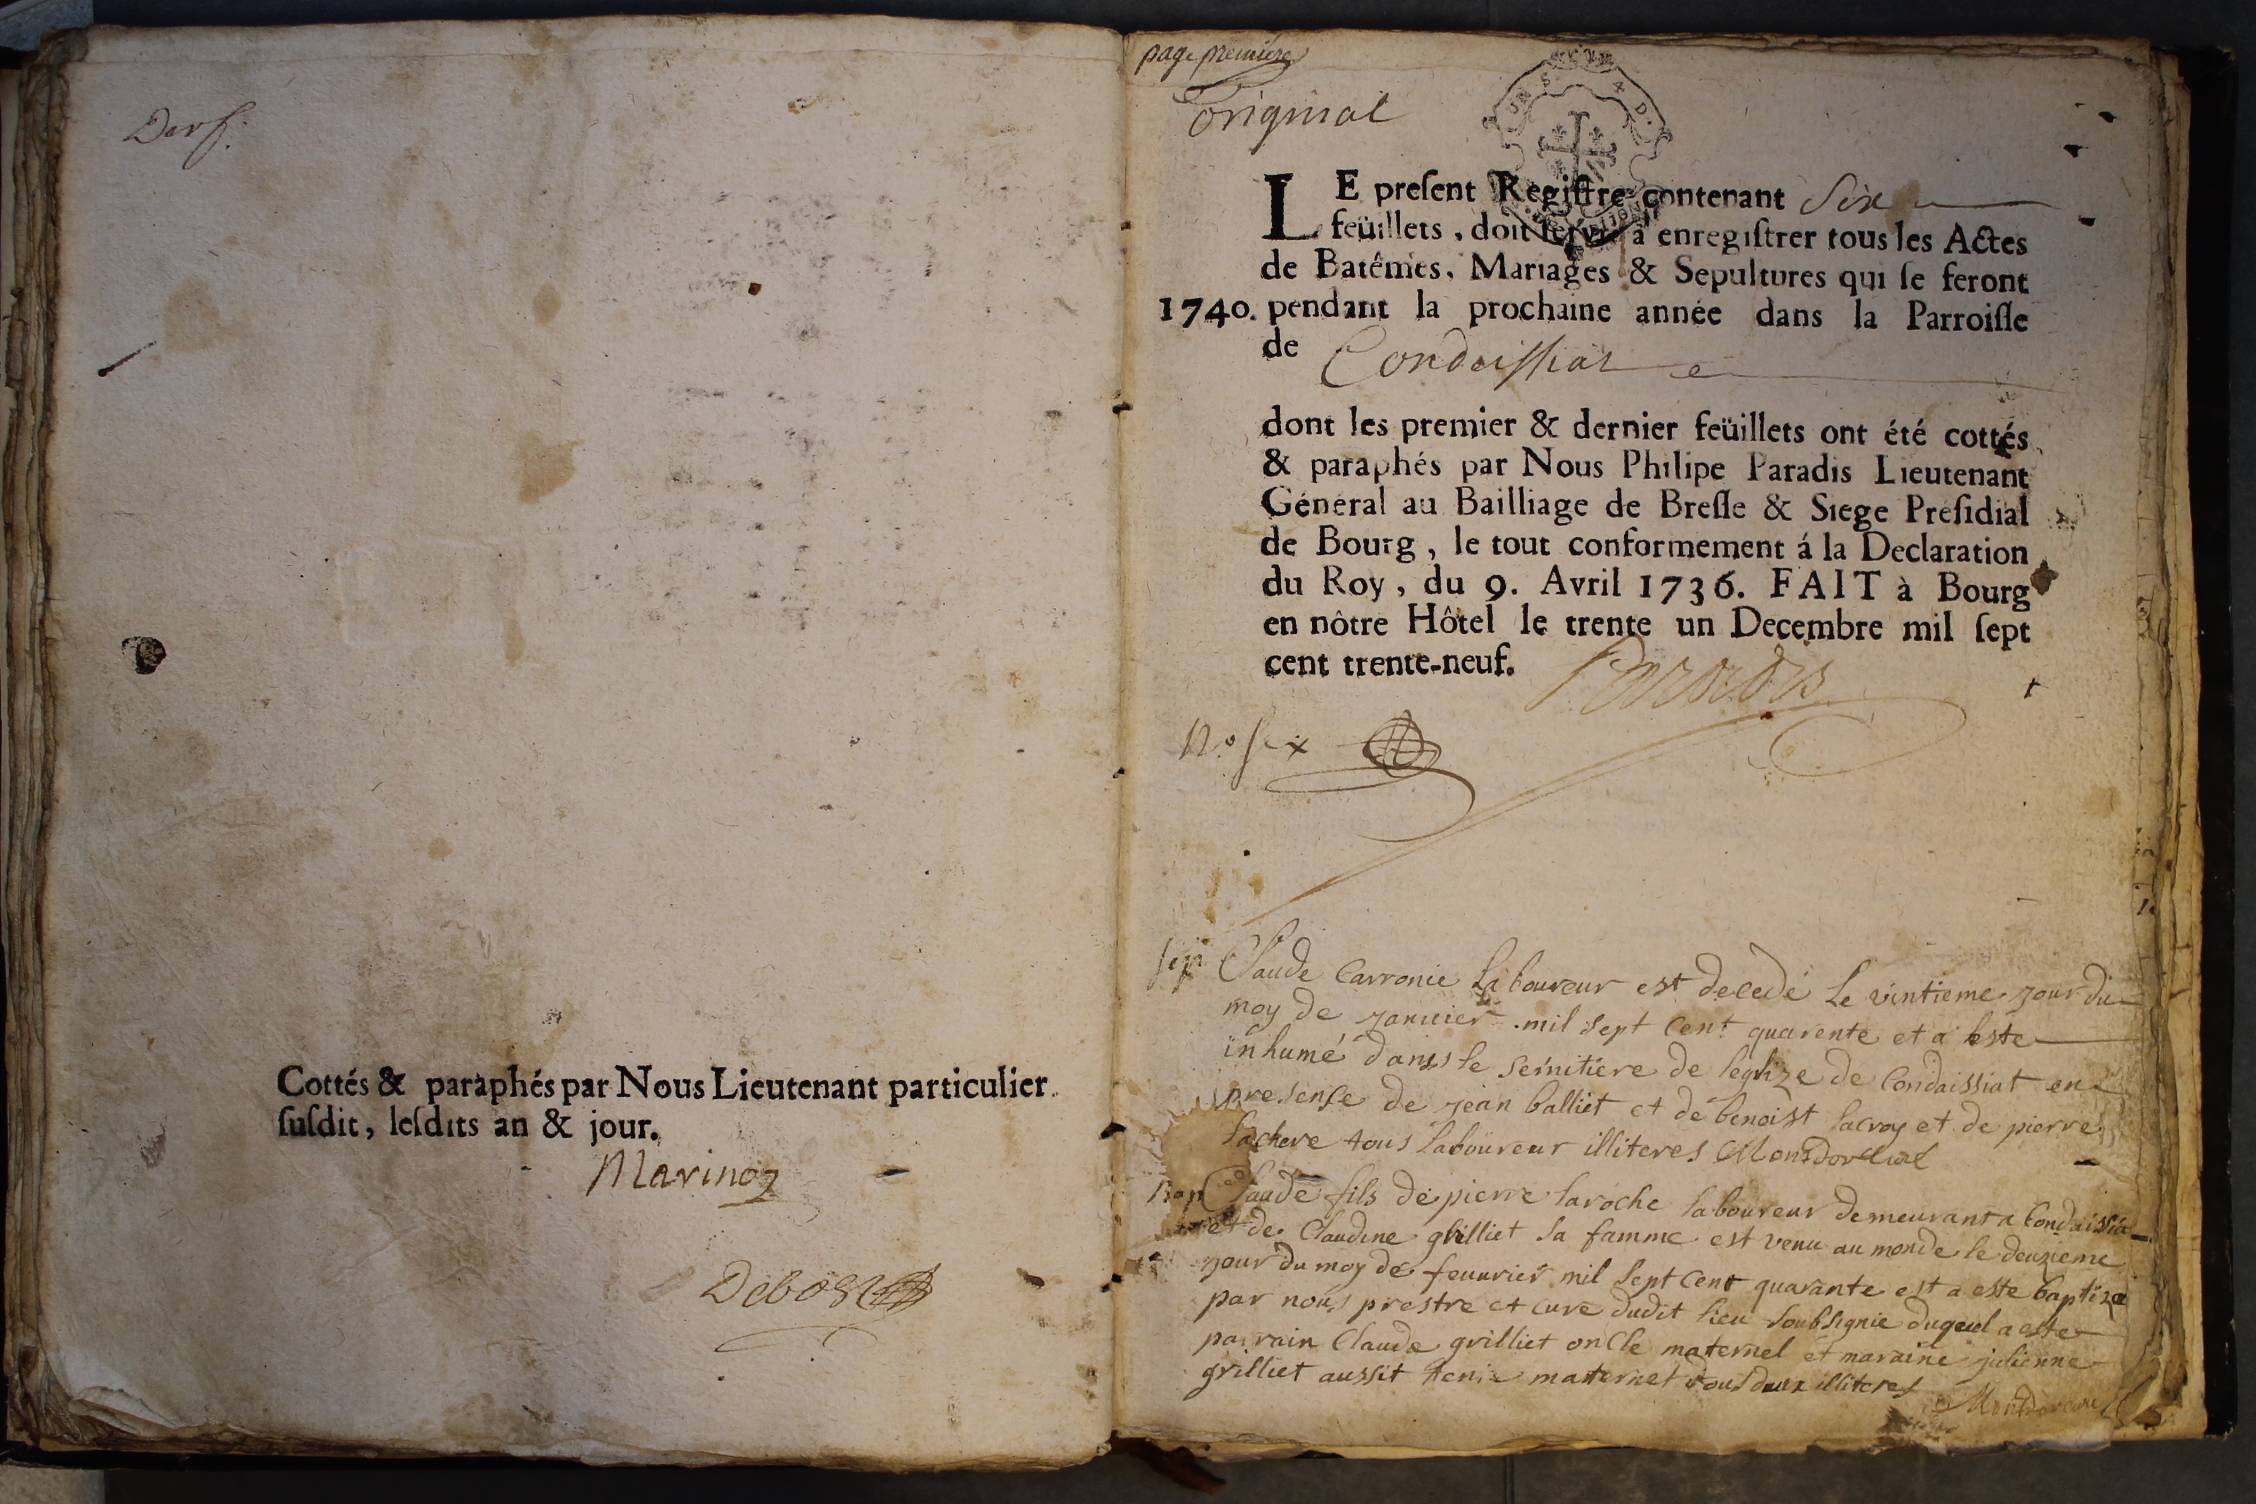 Cottés & paraphés par Nous Lieutenant particulier
ſuſdit, leſdits an & jour.
Marinoz
page premiere
original
LE preſent Regiſtre contenant Six
feüillets, doit ſervir à enregiſtrer tous les Actes
de Batêmes, Mariages & Sepultures qui ſe feront
1740. pendant la prochaine année dans la Parroiſſe
de Condeissiat
dont les premier & dernier feüillets ont été cottés
& paraphés par Nous Philipe Paradis Lieutenant
Général au Bailliage de Breſſe & Siege Préſidial
de Bourg, le tout conformement á la Declaration
du Roy, du 9. Avril 1736. FAIT à Bourg
en nôtre Hôtel le trente un Decembre mil ſept
cent trente-neuf. Paradis
No six
sep Claude Carronie Laboureur est decedé Le vintieme jour du
moy de janvier mil sept Cent quarente et a este
inhumé dans le semitiere de leglize de Condaissiat en
presense de jean balliet et de benoist lacroy et de pierre
lachere tous laboureur illiteres
Bap Claude fils de pierre laroche laboureur demeurant a Condaissia
et de Claudine grilliet sa famme est venu au monde le deuzieme
jour du moy de feuurier mil sept Cent quarante est a este baptize
par nous prestre et curé dudit lieu soubsignie duquel a este
parrain Claude grilliet onCle maternel et maraine julienne
grilliet aussit maternel tous deux illiteres